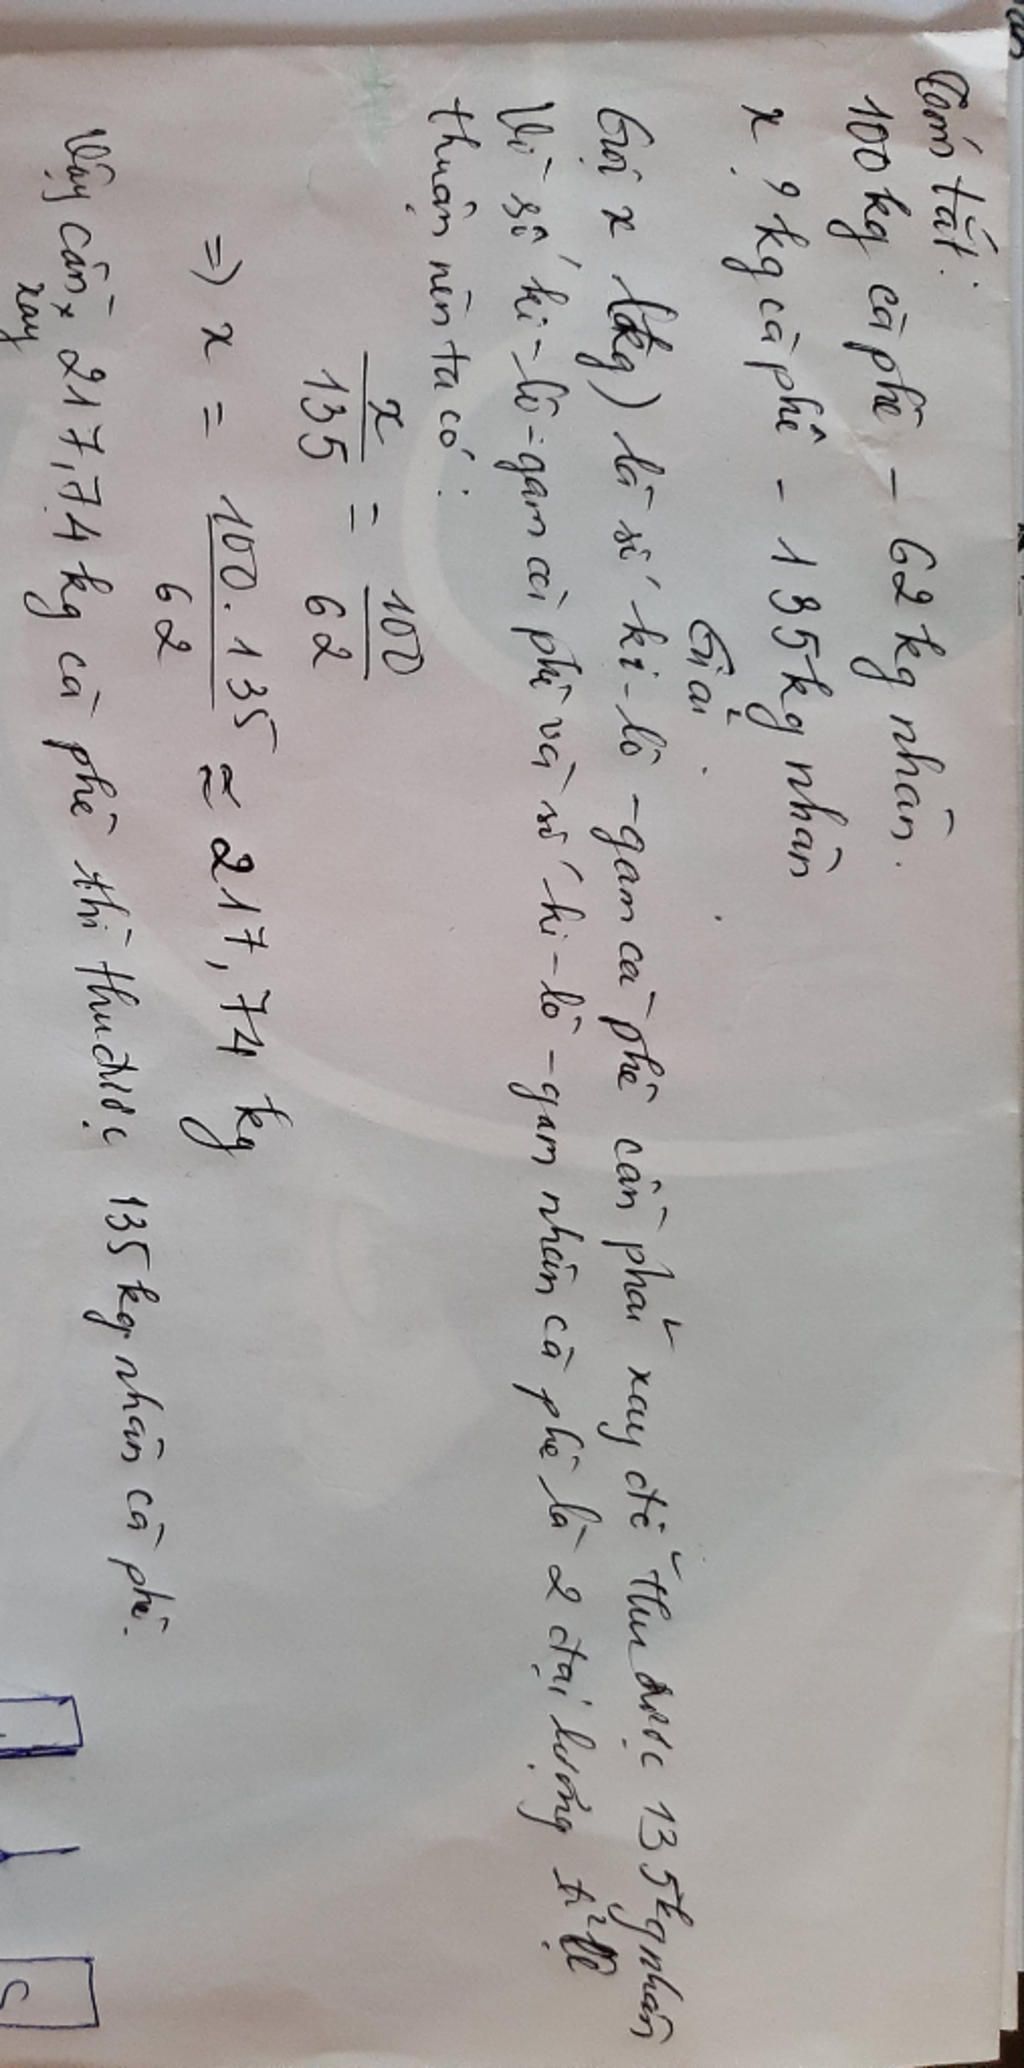 Tóm tắt:
100kg cà phê - 62 kg nhân.
x ? kg cà phê - 135kg nhân
Giải.
Gọi x (kg) là số ki-lô-gam cà phê cần phải xay để thu được 135kg nhân
Vì số ki-lô-gam cà phê và số ki-lô-gam nhân cà phê là 2 đại lượng tỉ lệ
thuận nên ta có:
x/135 = 100/62
=> x = 100.135/62 ≈ 217,74 kg
Vậy cần xay 217,74 kg cà phê thì thu được 135kg nhân cà phê.